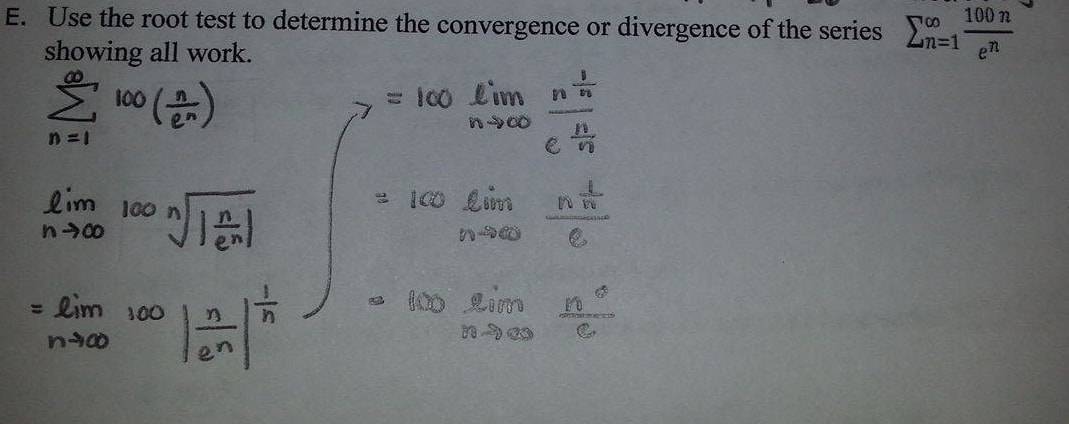 E. Use the root test to determine the convergence or divergence of the series ∑_{n=1}^{∞} 100 n / e^n
showing all work.
∑_{n=1}^{∞} 100 (n / e^n)
lim_{n→∞} 100 ⁿ√|n / e^n|
= lim_{n→∞} 100 |n / e^n|^{1/n}
= 100 lim_{n→∞} n^{1/n} / e^{n/n}
= 100 lim_{n→∞} n^{1/n} / e
= 100 lim_{n→∞} n^0 / e